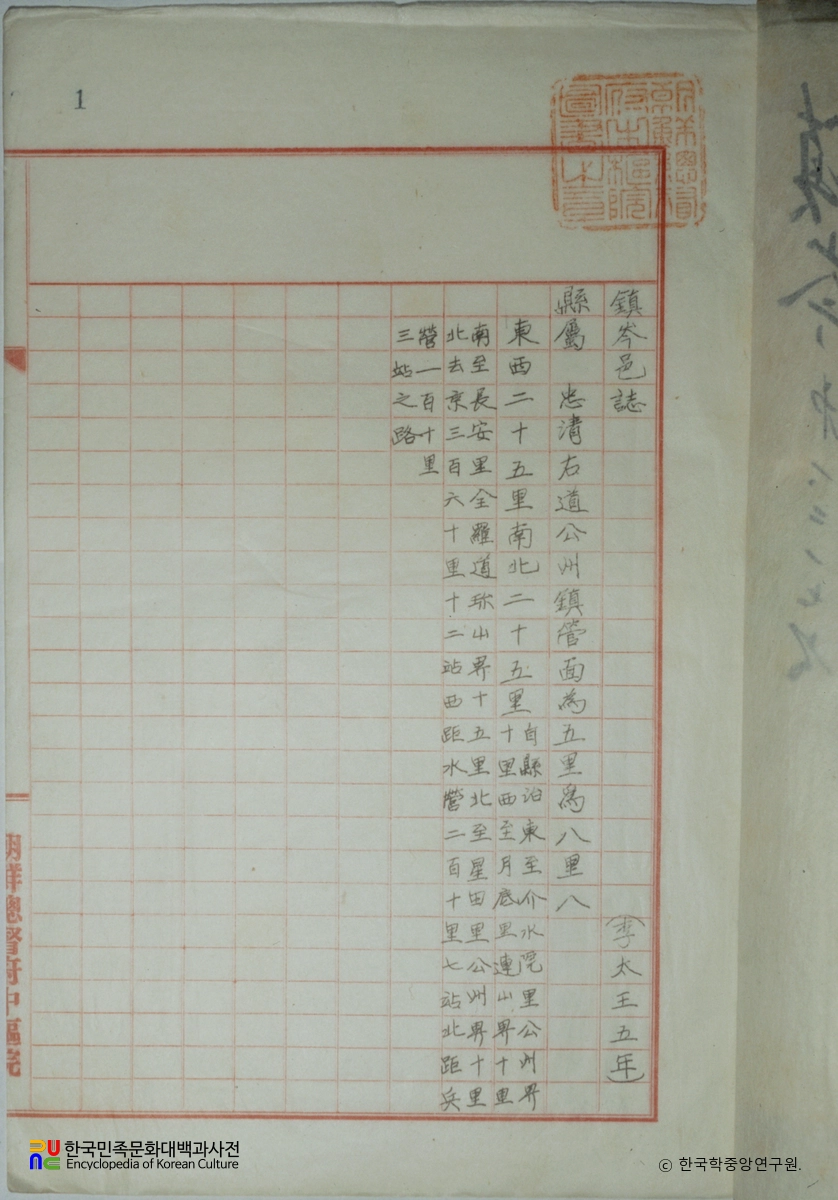 1
朝鮮總督
府中樞院
圖書之章
鎮岑邑誌 (李太王五年)
縣屬 忠清右道公州鎮管面為五里為八里八
東西二十五里南北二十五里
自縣治東至介水院里公州界
十里西至月底里連山界十里
南至長安里全羅道珎山界十五里北至星田里公州界十里
北去京三百六十里十二站西距水營二百十里七站北距兵
營一百十里
三站之路
朝鮮總督府中樞院
한국민족문화대백과사전
Encyclopedia of Korean Culture
ⓒ 한국학중앙연구원.